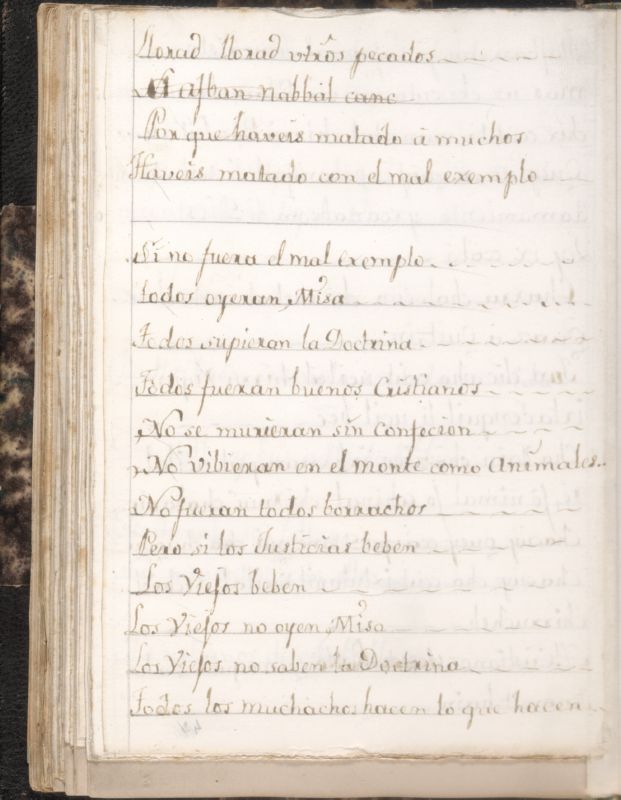 Llorad llorad vtrôs pecados
Por que haveis matado â muchos
Haveis matado con el mal exemplo
Si no fuera el mal exemplo
todos oyeran Misa
Todos supieran la Doctrina
Todos fueran buenos Cristianos
No se murieran sin confecion
No vibieran en el monte como Animales
No fueran todos borrachos
Pero si los Justicias beben
Los Viejos beben
Los Viejos no oyen Misa
Los Viejos no saben la Doctrina
Todos los muchachos hacen lo que hacen